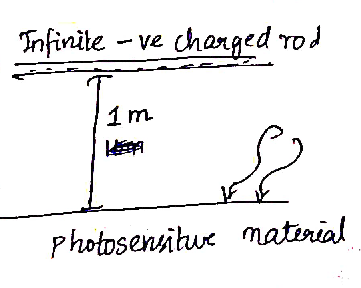 Infinite -ve charged rod
1 m
photosensitive material